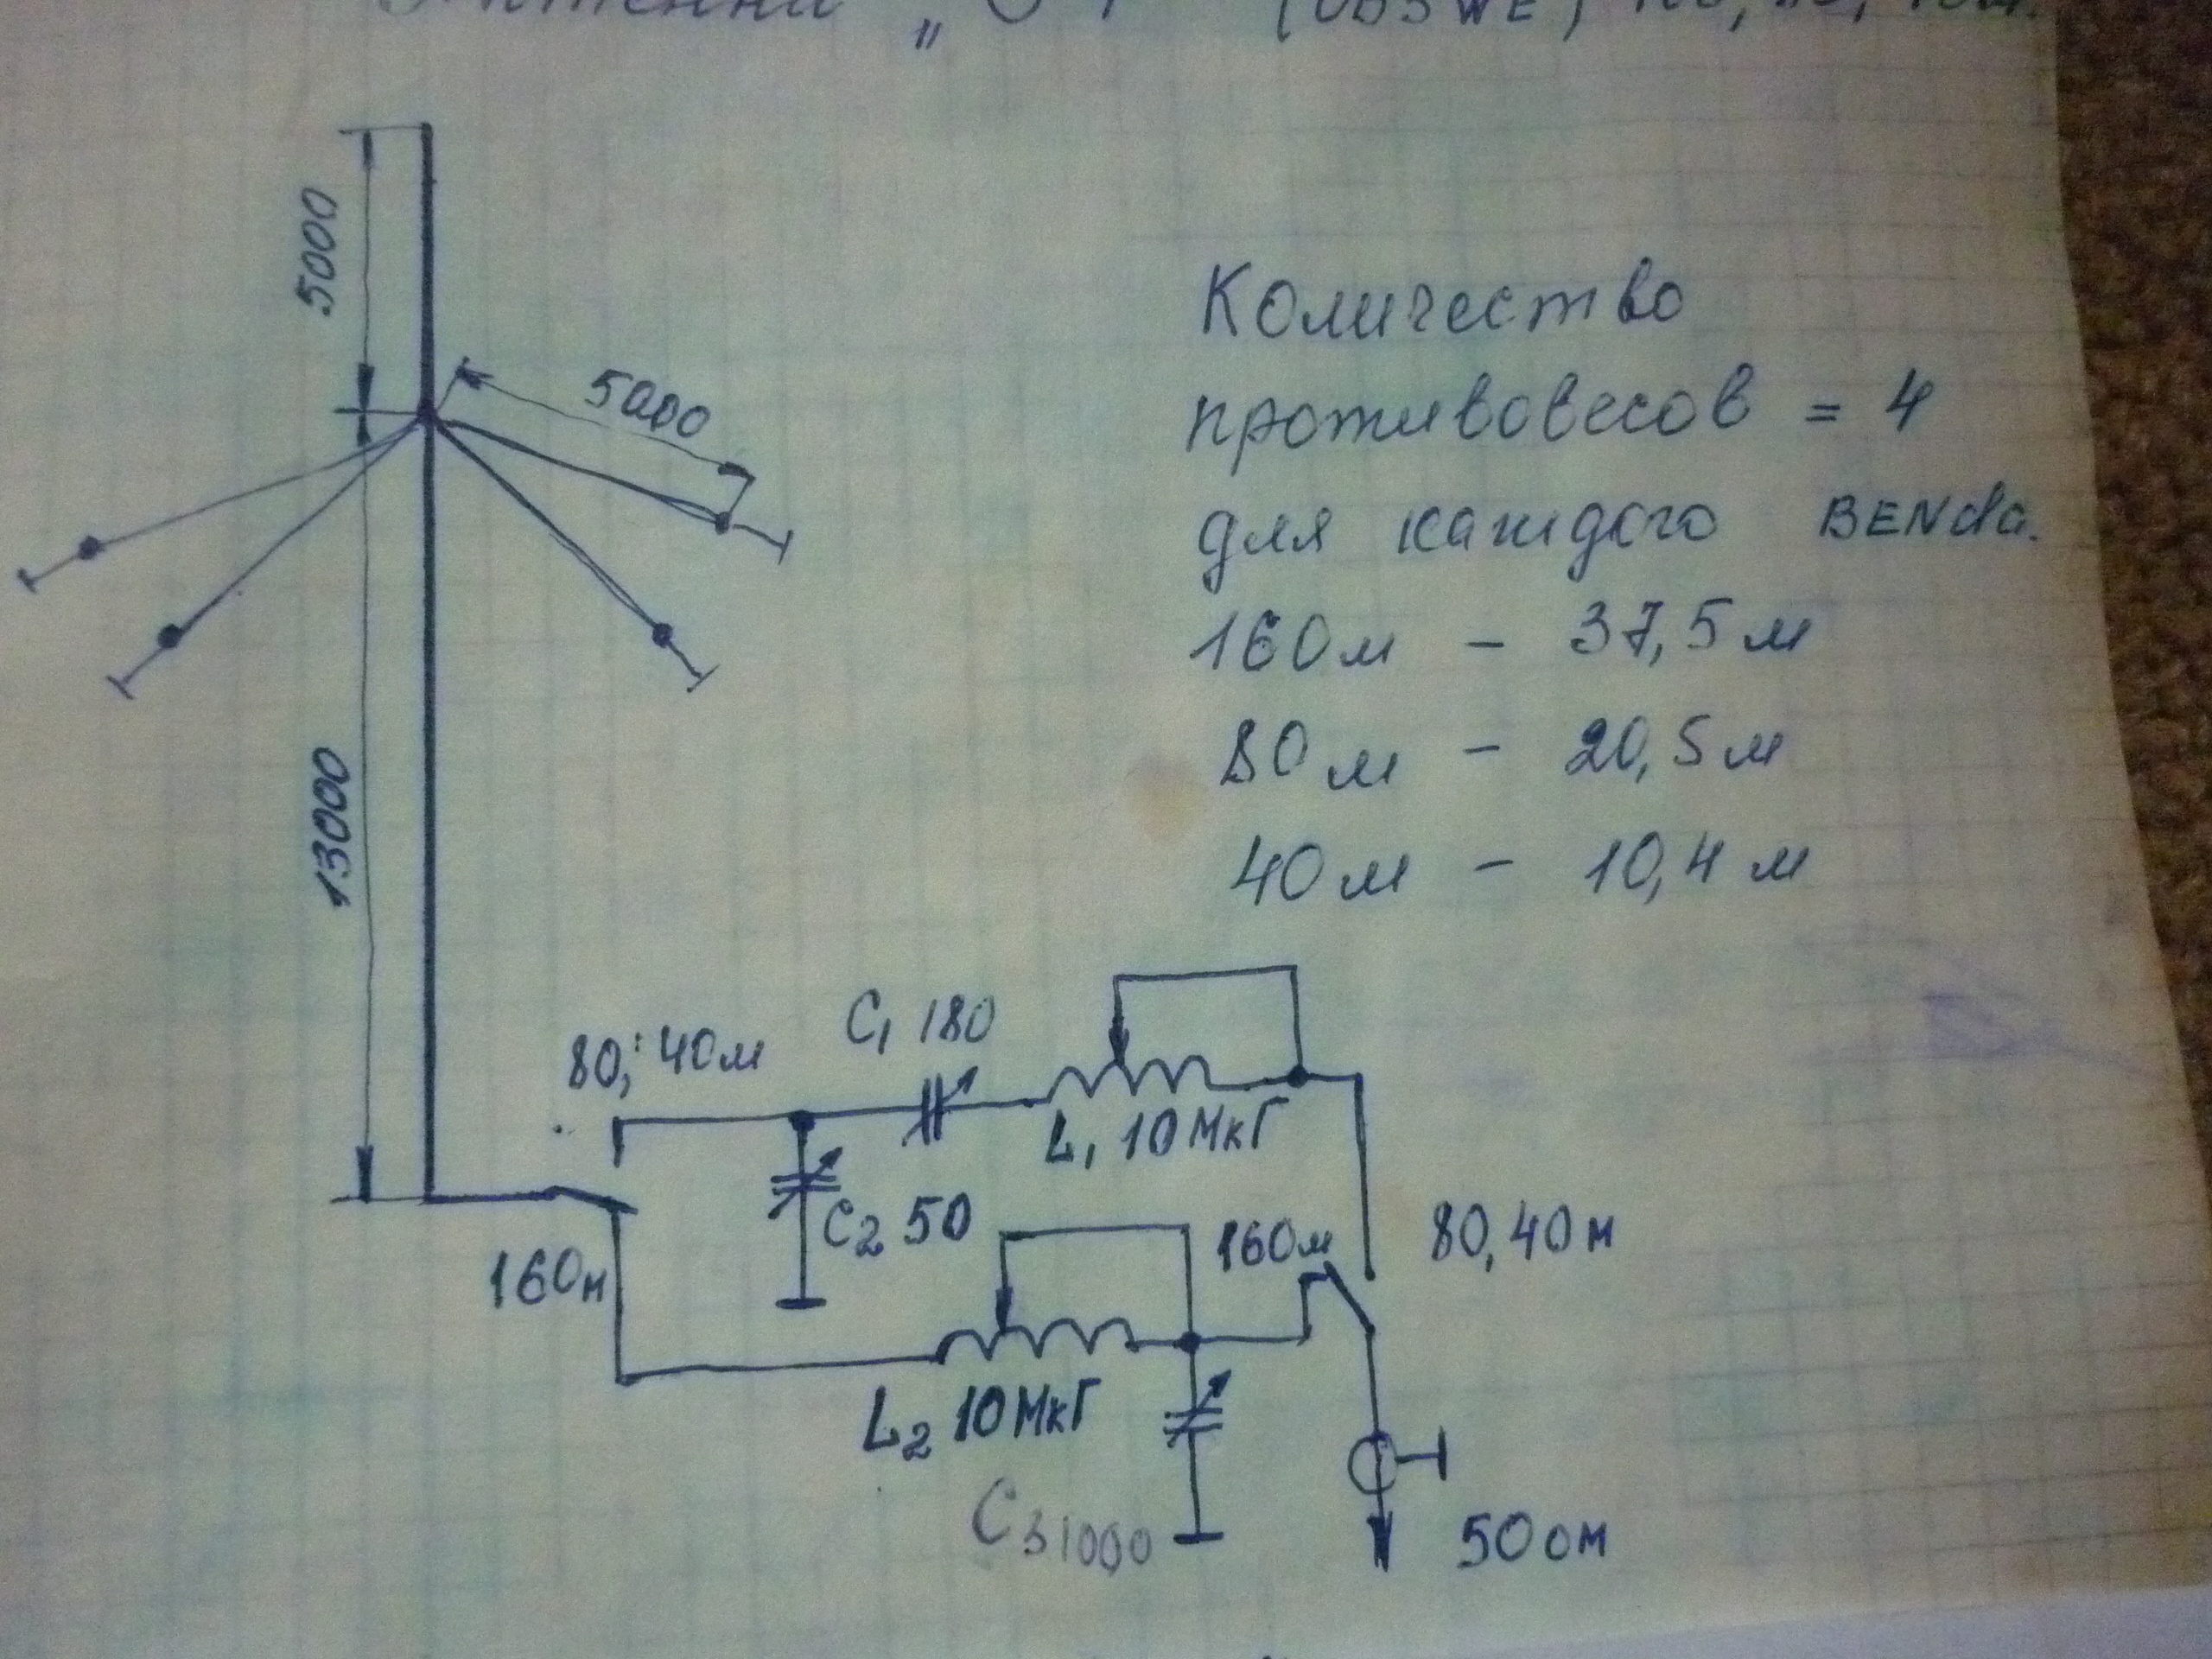 (UB5WE)
5000
5000
Количество
противовесов = 4
для каждого BENda.
160м - 37,5м
80м - 20,5м
40м - 10,4м
13000
80, 40м
C1 180
L1 10МкГ
C2 50
160м
160м
80,40м
L2 10МкГ
C3 1000
50 ом